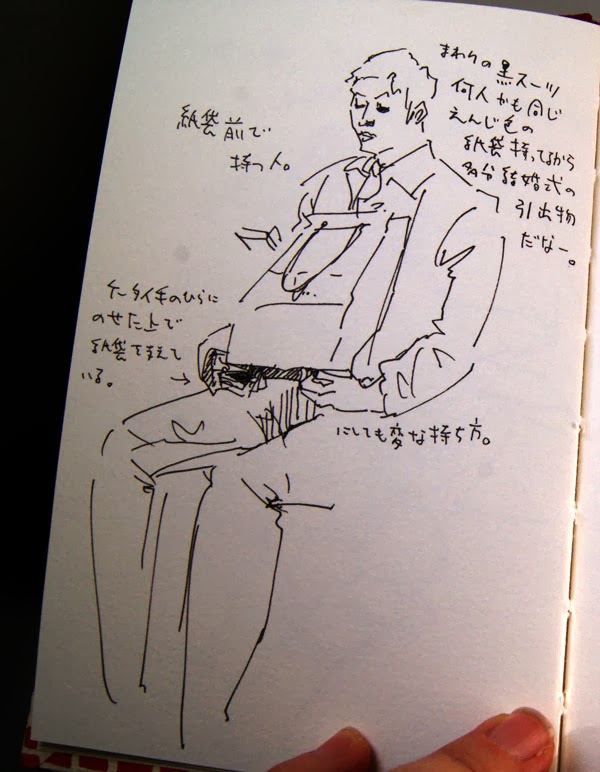 まわりの黒スーツ
何人かも同じ
えんじ色の
紙袋持ってるから
多分結婚式の
引出物
だなー。
紙袋前で
持つ人。
ケータイ手のひらに
のせた上で
紙袋を支えて
いる。
にしても変な持ち方。